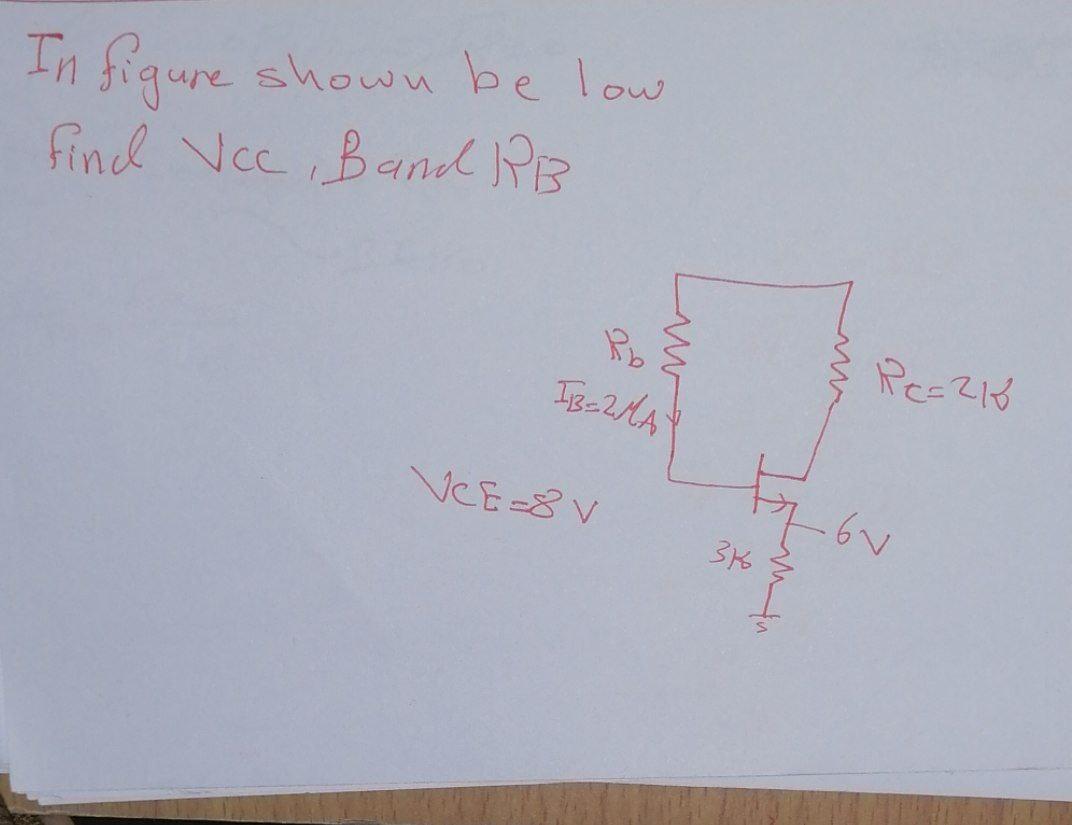 In figure shown be low
find Vcc, B and RB
Rb
IB=2MA
Rc=2K
VCE=8V
6V
3K